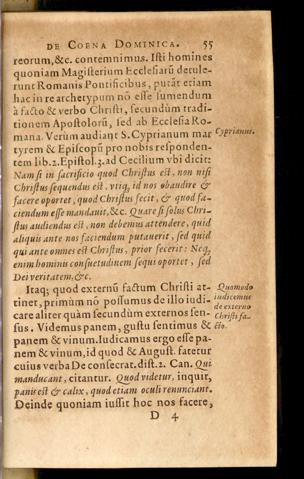 DE COENA DOMINICA. 55
reorum, &c. contemnimus. Isti homines
quoniam Magisterium Ecclesiarũ detule-
runt Romanis Pontificibus, putãt etiam
hac in re archetypum nõ esse sumendum
à facto & verbo Christi, secundùm tradi-
tionem Apostolorũ, sed ab Ecclesia Ro-
mana. Verùm audiant S. Cyprianum mar
tyrem & Episcopũ pro nobis responden-
tem lib. 2. Epistol. 3. ad Cecilium vbi dicit:
Nam si in sacrificio quod Christus est, non nisi
Christus sequendus est, vtiq; id nos obaudire &
facere oportet, quod Christus fecit, & quod fa-
ciendum esse mandauit, &c. Quare si solus Chri-
stus audiendus est, non debemus attendere, quid
aliquis ante nos faciendum putauerit, sed quid
qui ante omnes est Christus, prior fecerit: Neq;
enim hominis consuetudinem sequi oportet, sed
Dei veritatem, &c.
Itaq; quod externũ factum Christi at-
tinet, primùm nõ possumus de illo iudi-
care aliter quàm secundùm externos sen-
sus. Videmus panem, gustu sentimus &
panem & vinum. Iudicamus ergo esse pa-
nem & vinum, id quod & August. fatetur
cuius verba De consecrat. dist. 2. Can. Qui
manducant, citantur. Quod videtur, inquit,
panis est & calix, quod etiam oculi renunciant.
Deinde quoniam iussit hoc nos facere,
D 4
Cyprianus.
Quomodo
iudicemus
de externo
Christi fa-
cto.